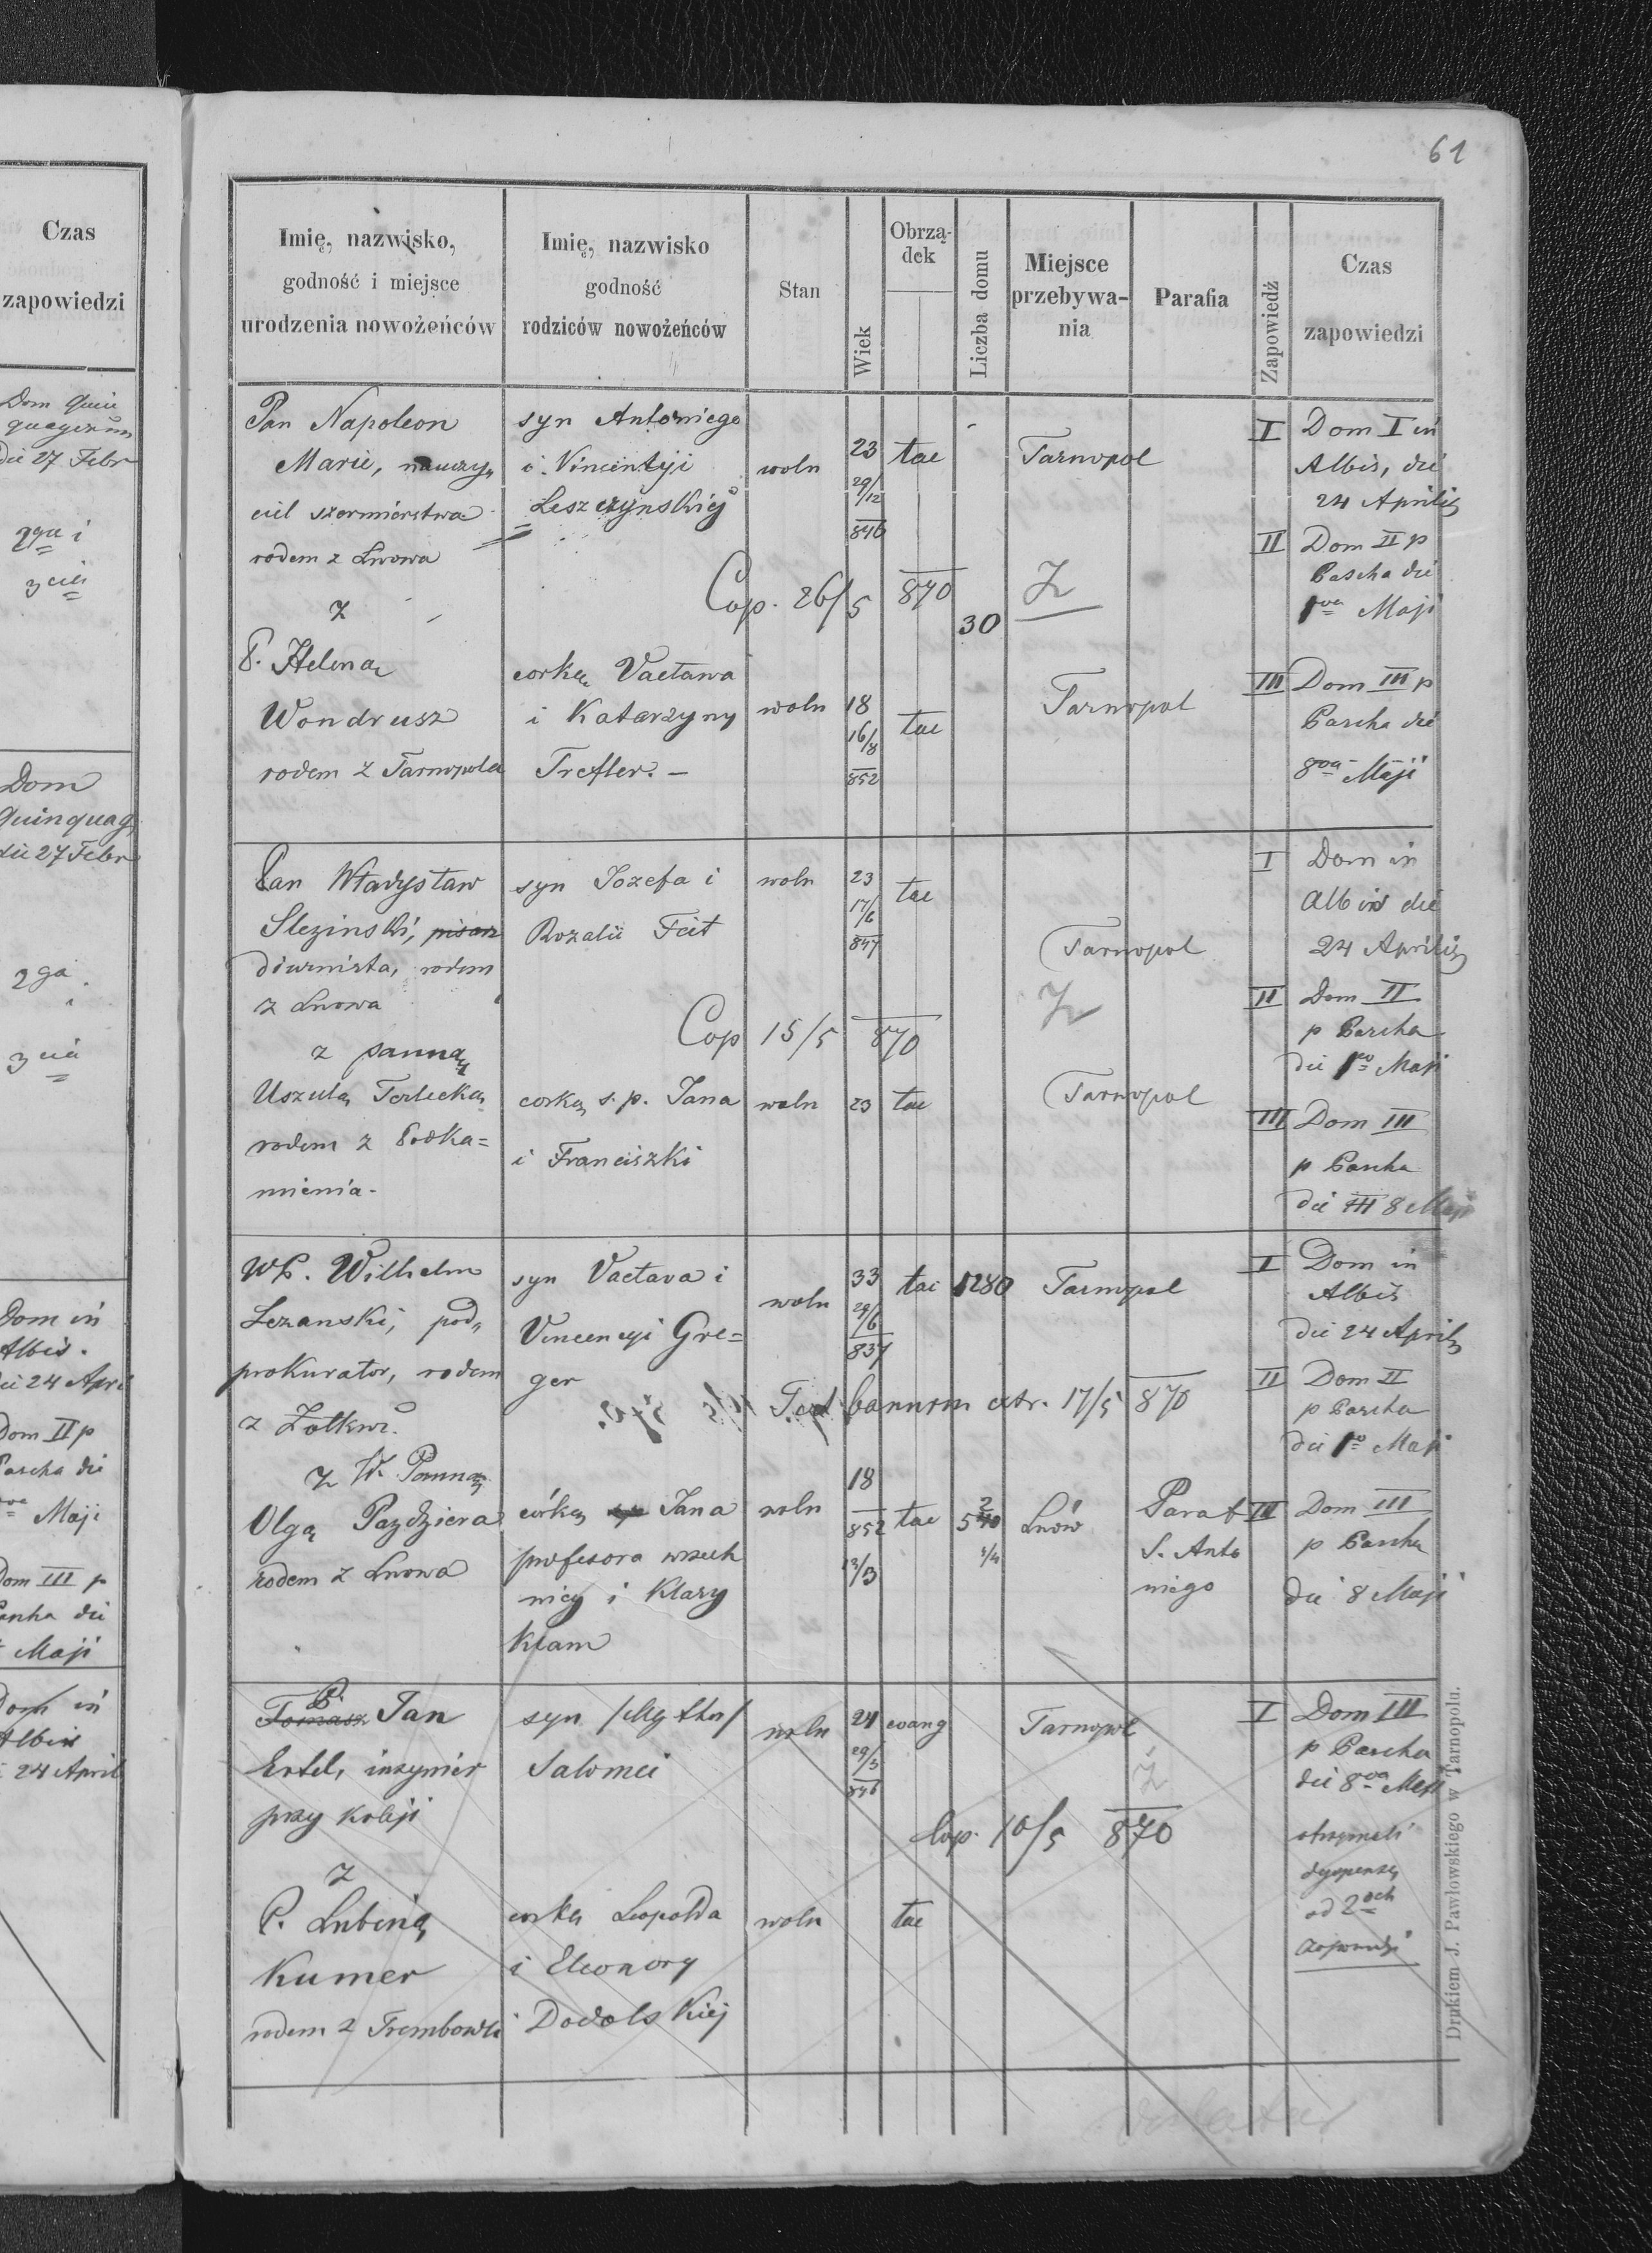 Czas
zapowiedzi
Dom Quin
quagesim
die 27 Febr
2ga i
3cia
Dom
Quinquag
die 27 Febr
2ga i
3cia
Dom in
Albis.
die 24 Apri
Dom II p
Pascha die
Maji
Dom III p
Pascha die
Maji
Dom in
Albis
24 April
61
Imię, nazwisko,
godność i miejsce
urodzenia nowożeńców
Imię, nazwisko
godność
rodziców nowożeńców
Stan
Wiek
Obrzą-
dek
Liczba domu
Miejsce
przebywa-
nia
Parafia
Zapowiedź
Czas
zapowiedzi
Pan Napoleon
Marie, nauczy„
ciel szermierstwa
rodem z Lwowa
z
P. Heleną
Wondrusz
rodem z Tarnopola
syn Antoniego
i Vincentyi
Leszczynskiéj
corką Vacława
i Katarzyny
Trefler. –
woln
23
29/12
846
tac
Tarnopol
Cop. 26/5 870
30
Z
woln
18
16/8
852
tac
Tarnopol
I Dom I in
Albis, die
24 Aprilis
II Dom II p
Pascha die
1va Maji
III Dom III p
Pascha die
8va Maji
Pan Władysław
Slezinski, pisarz
diurnista, rodem
z Lwowa
z panną
Uszulą Terlecką
rodem z Podka=
mienia.
syn Józefa i
Rozalii Feit
corką s. p. Jana
i Franciszki
woln
23
17/6
847
tac
Tarnopol
Cop 15/5 870
Z
woln
23
tac
Tarnopol
I Dom in
Albis die
24 Aprilis
II Dom II
p Pascha
die 1va Maji
III Dom III
p Pascha
die III 8 Maji
WP. Wilhelm
Lezanski, pod„
prokurator, rodem
z Zołkwi
z W. Panną
Olgą Pazdziera
rodem z Lwowa
syn Vacłava i
Vincencyi Gre=
ger
córką Jana
profesora wszech
nicy i Klary
Kłam
woln
33
29/6
837
tac
1280
Tarnopol
Test bannorum extr. 17/5 870
woln
18
852
13/3
tac
2
540
1/4
Lwów
Paraf
S. Anto
niego
I Dom in
Albis
die 24 Aprilis
II Dom II
p Pascha
die 1va Maji
III Dom III
p Pascha
die 8 Maji
P.
Tomasz Jan
Ertel, inzynier
przy koleji
z
P. Lubiną
Kumer
rodem z Trembowli
syn /Mathu/
Salomei
corką Leopolda
i Eleonory
Dodolskiej
woln
24
29/3
846
evang
Tarnopol
Z
Cop. 10/5 870
woln
tac
I Dom III
p Pascha
die 8va Maji
otrzymali
dyspensę
od 2och
zapowiedzi
Drukiem J. Pawłowskiego w Tarnopolu.